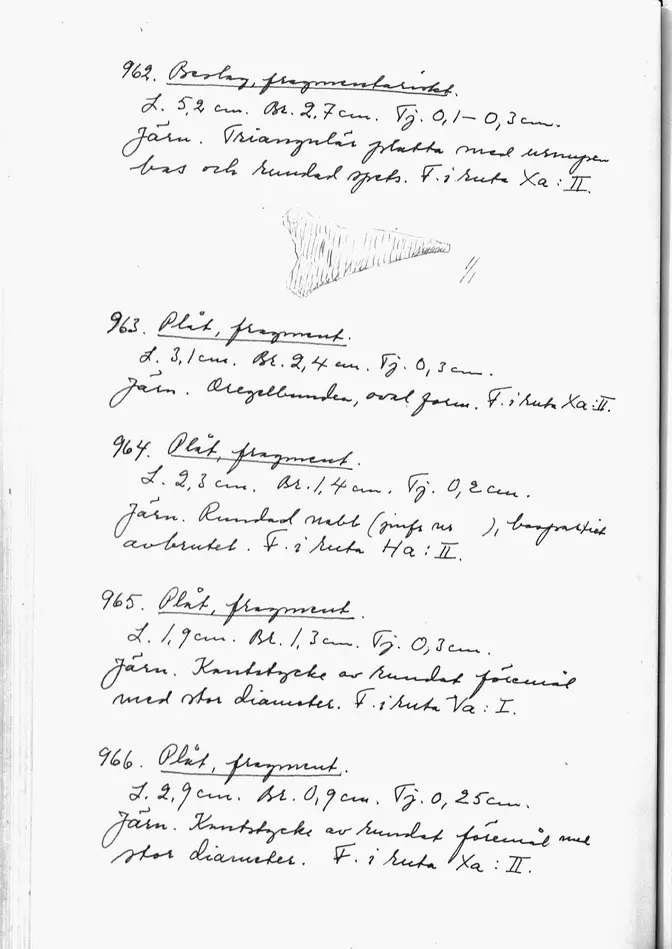 962. Beslag, fragmentariskt.
L. 5,2 cm. Br. 2,7 cm. Tj. 0,1–0,3 cm.
Järn. Triangulär platta med urnupen
bas och rundad spets. F. i ruta Xa : II.
1/1
963. Plåt, fragment.
L. 3,1 cm. Br. 2,4 cm. Tj. 0,3 cm.
Järn. Oregelbunden, oval form. F. i ruta Xa : II.
964. Plåt, fragment.
L. 2,3 cm. Br. 1,4 cm. Tj. 0,2 cm.
Järn. Rundad nabb (jmfr nr ), baspartiet
avbrutet. F. i ruta Ha : II.
965. Plåt, fragment.
L. 1,9 cm. Br. 1,3 cm. Tj. 0,3 cm.
Järn. Kantstycke av rundat föremål
med stor diameter. F. i ruta Va : I.
966. Plåt, fragment.
L. 2,9 cm. Br. 0,9 cm. Tj. 0,25 cm.
Järn. Kantstycke av rundat föremål med
stor diameter. F. i ruta Xa : II.